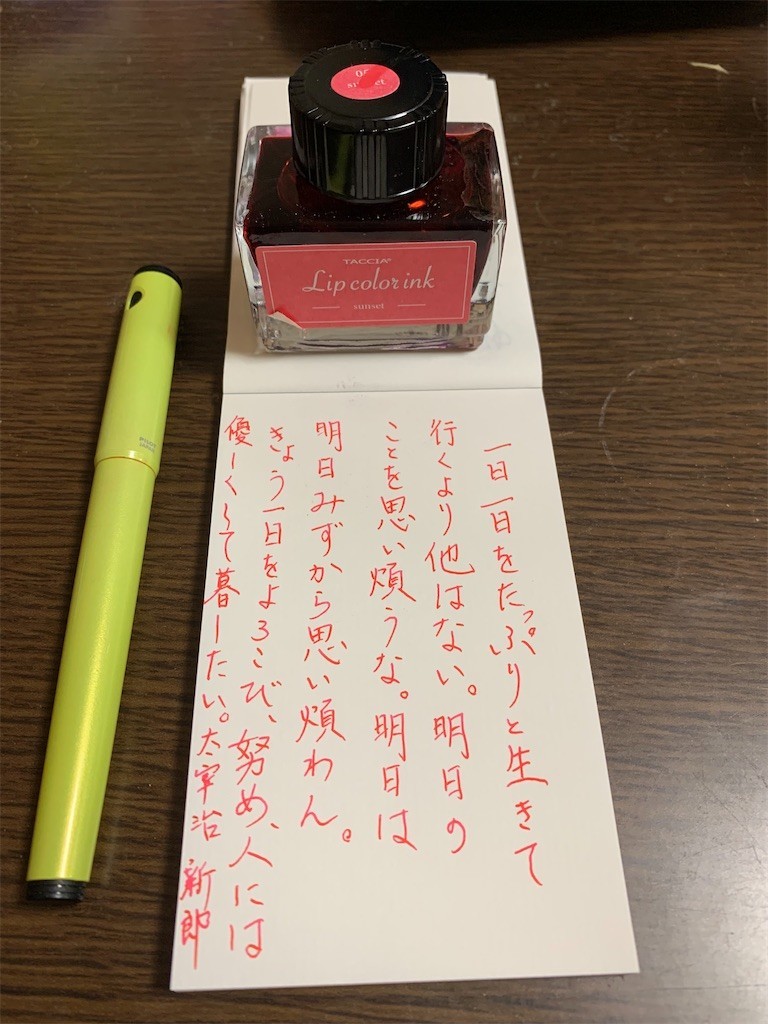 sunset
TACCIA
Lip color ink
sunset
一日一日をたっぷりと生きて
行くより他はない。明日の
ことを思い煩うな。明日は
明日みずから思い煩わん。
きょう一日をよろこび、努め、人には
優しくして暮したい。太宰治 新郎